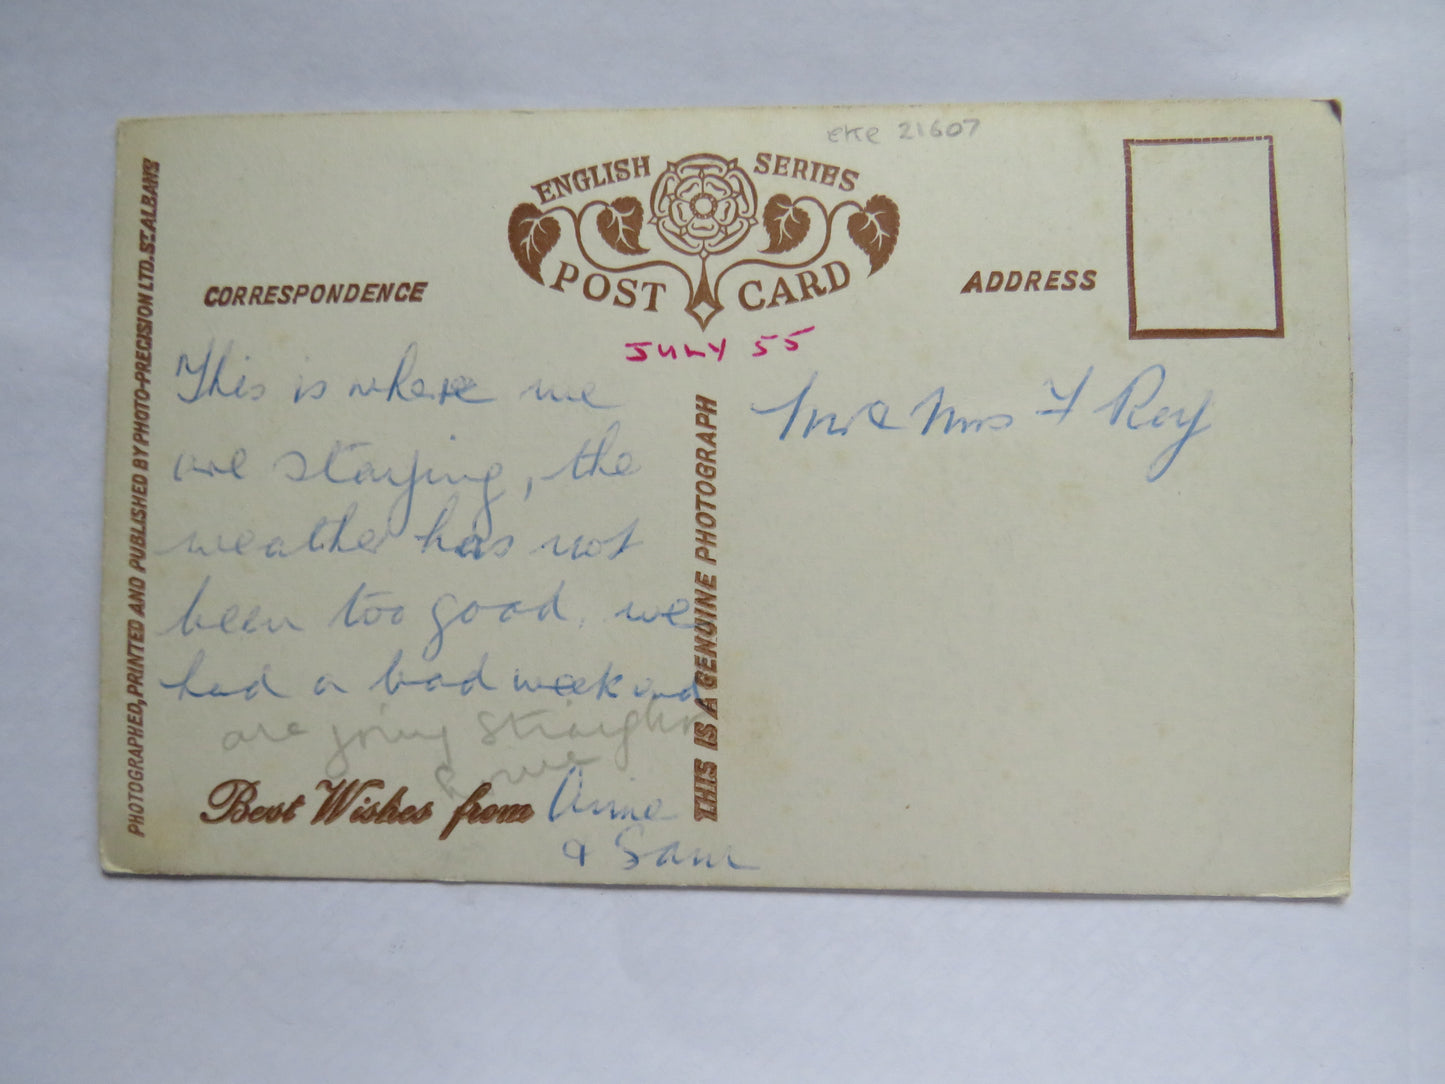 eke 21607
ENGLISH SERIES
POST CARD
CORRESPONDENCE
ADDRESS
JULY 55
This is where we
are staying, the
weather has not
been too good, we
had a bad weekend
are going straight
Best Wishes from Anne
& Sam
Mr & Mrs F Roy
THIS IS A GENUINE PHOTOGRAPH
PHOTOGRAPHED, PRINTED AND PUBLISHED BY PHOTO-PRECISION LTD. ST. ALBANS